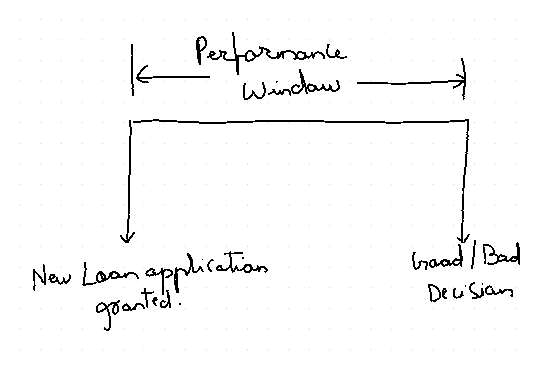 Performance
Window
New Loan application
granted.
Good/Bad
Decision